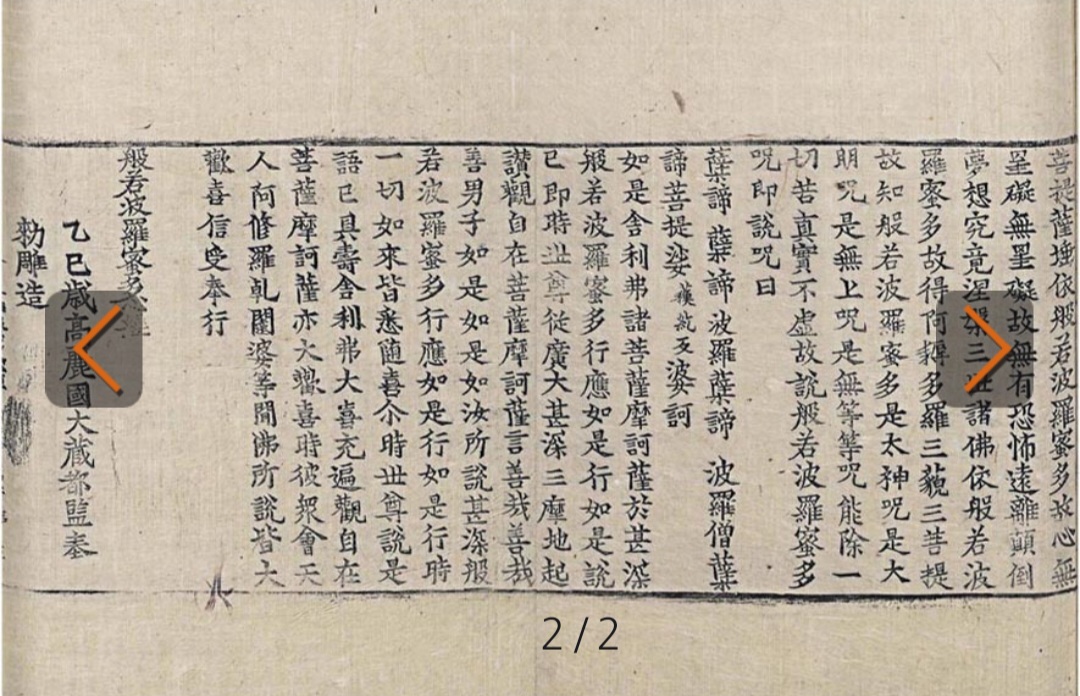 菩提薩埵依般若波羅蜜多故心無
罣礙無罣礙故無有恐怖遠離顛倒
夢想究竟涅槃三世諸佛依般若波
羅蜜多故得阿耨多羅三藐三菩提
故知般若波羅蜜多是大神呪是大
明呪是無上呪是無等等呪能除一
切苦真實不虛故說般若波羅蜜多
呪即說呪曰
蘖諦 蘖諦 波羅蘖諦 波羅僧蘖
諦菩提娑紇反婆訶
如是舍利弗諸菩薩摩訶薩於甚深
般若波羅蜜多行應如是行如是說
已即時世尊從廣大甚深三摩地起
讃觀自在菩薩摩訶薩言善哉善哉
善男子如是如是如汝所說甚深般
若波羅蜜多行應如是行如是行時
一切如來皆悉隨喜尒時世尊說是
語已具壽舍利弗大喜充遍觀自在
菩薩摩訶薩亦大歡喜時彼衆會天
人阿修羅乹闥婆等聞佛所說皆大
歡喜信受奉行
般若波羅蜜多
乙巳歲高麗國大藏都監奉
勑雕造
2/2